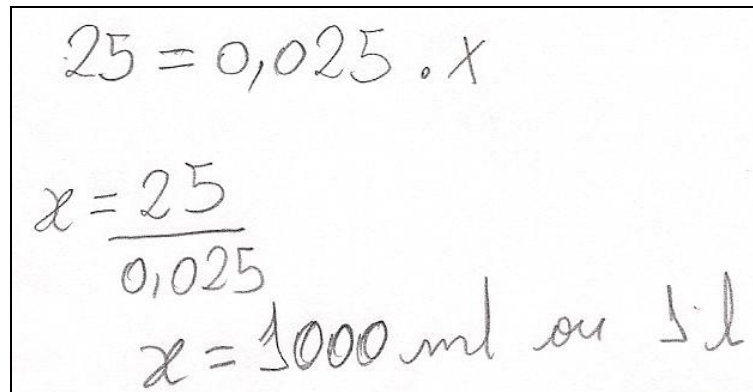 25 = 0,025 . x
x = 25
0,025
x = 1000 ml ou 1 l